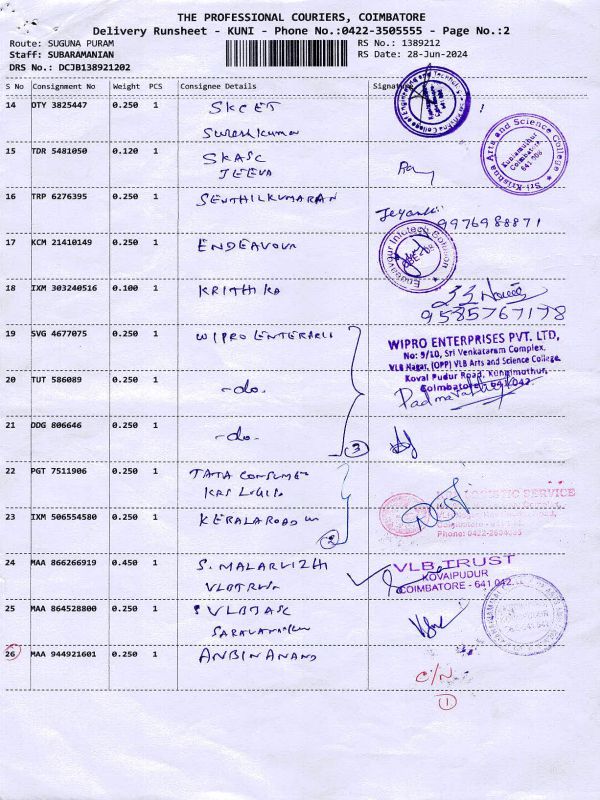 THE PROFESSIONAL COURIERS, COIMBATORE
Delivery Runsheet - KUNI - Phone No.:0422-3505555 - Page No.:2
Route: SUGUNA PURAM
RS No.: 1389212
Staff: SUBARAMANIAN
RS Date: 28-Jun-2024
DRS No.: DCJB138921202
S No Consignment No Weight PCS Consignee Details Signature
14 DTY 3825447 0.250 1 SKCET
Sureshkumar
15 TDR 5481050 0.120 1 SKASC
JEEVA
Sri Krishna Arts and Science College
Kuniamuthur
Coimbatore
641 008
16 TRP 6276395 0.250 1 SENTHILKUMARAN
9976988871
17 KCM 21410149 0.250 1 ENDEAVOUR
18 IXM 303240516 0.100 1 KRITHIKA
9585767178
19 SVG 4677075 0.250 1 WIPRO
WIPRO ENTERPRISES PVT. LTD,
No: 9/10, Sri Venkataram Complex,
VLB Nagar, (OPP) VLB Arts and Science College,
Koval Pudur Road, Kuniamuthur,
Coimbatore - 641 042
20 TUT 586089 0.250 1 -do-
21 DDG 806646 0.250 1 -do-
3
22 PGT 7511906 0.250 1 TATA
KRS
23 IXM 506554580 0.250 1
2
SERVICE
24 MAA 866266919 0.450 1 S. MALARVIZH
VLB TRUST
KOVAIPUDUR
COIMBATORE - 641 042
25 MAA 864528800 0.250 1
26 MAA 944921601 0.250 1 ANBIN ANAND
C/N
1